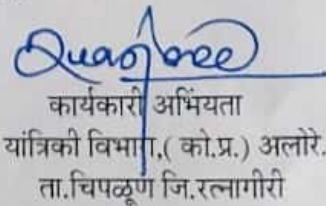 कार्यकारी अभियता
यांत्रिकी विभाग,( को.प्र.) अलोरे.
ता.चिपळूण जि.रत्नागीरी